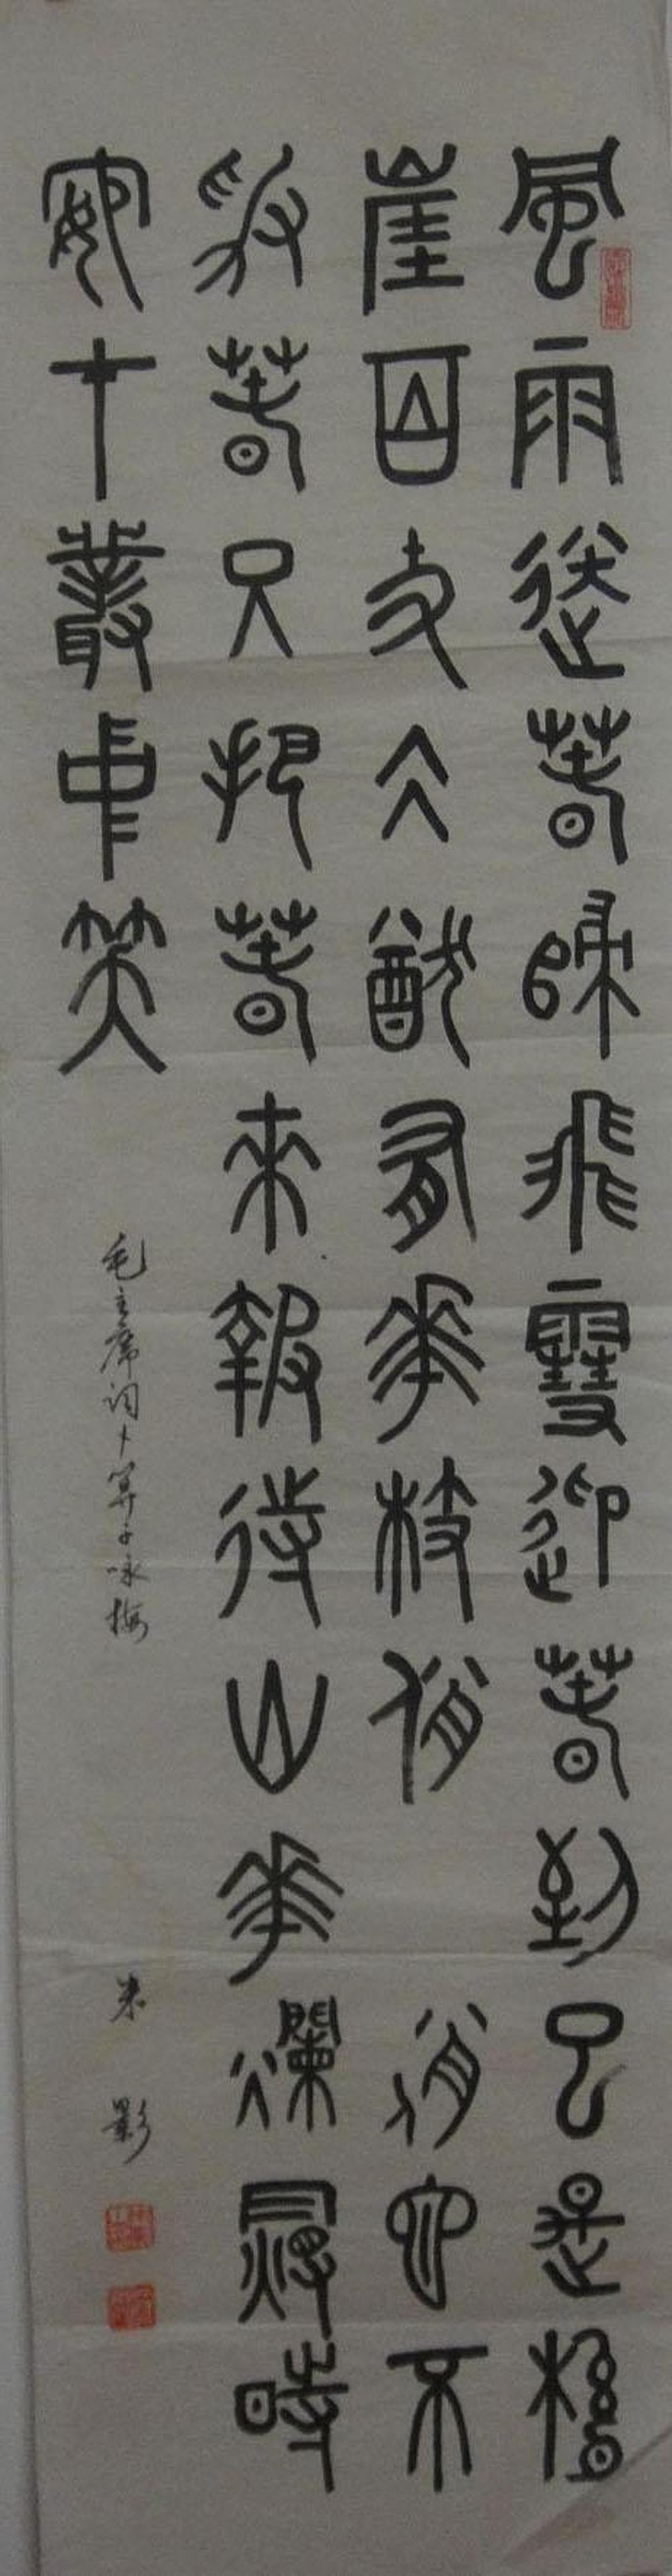 風雨送春歸飛雪迎春到已是懸
崖百丈冰猶有華枝俏 俏也不
爭春只把春來報待山華爛漫時
在叢中笑
毛主席词卜算子咏梅
影